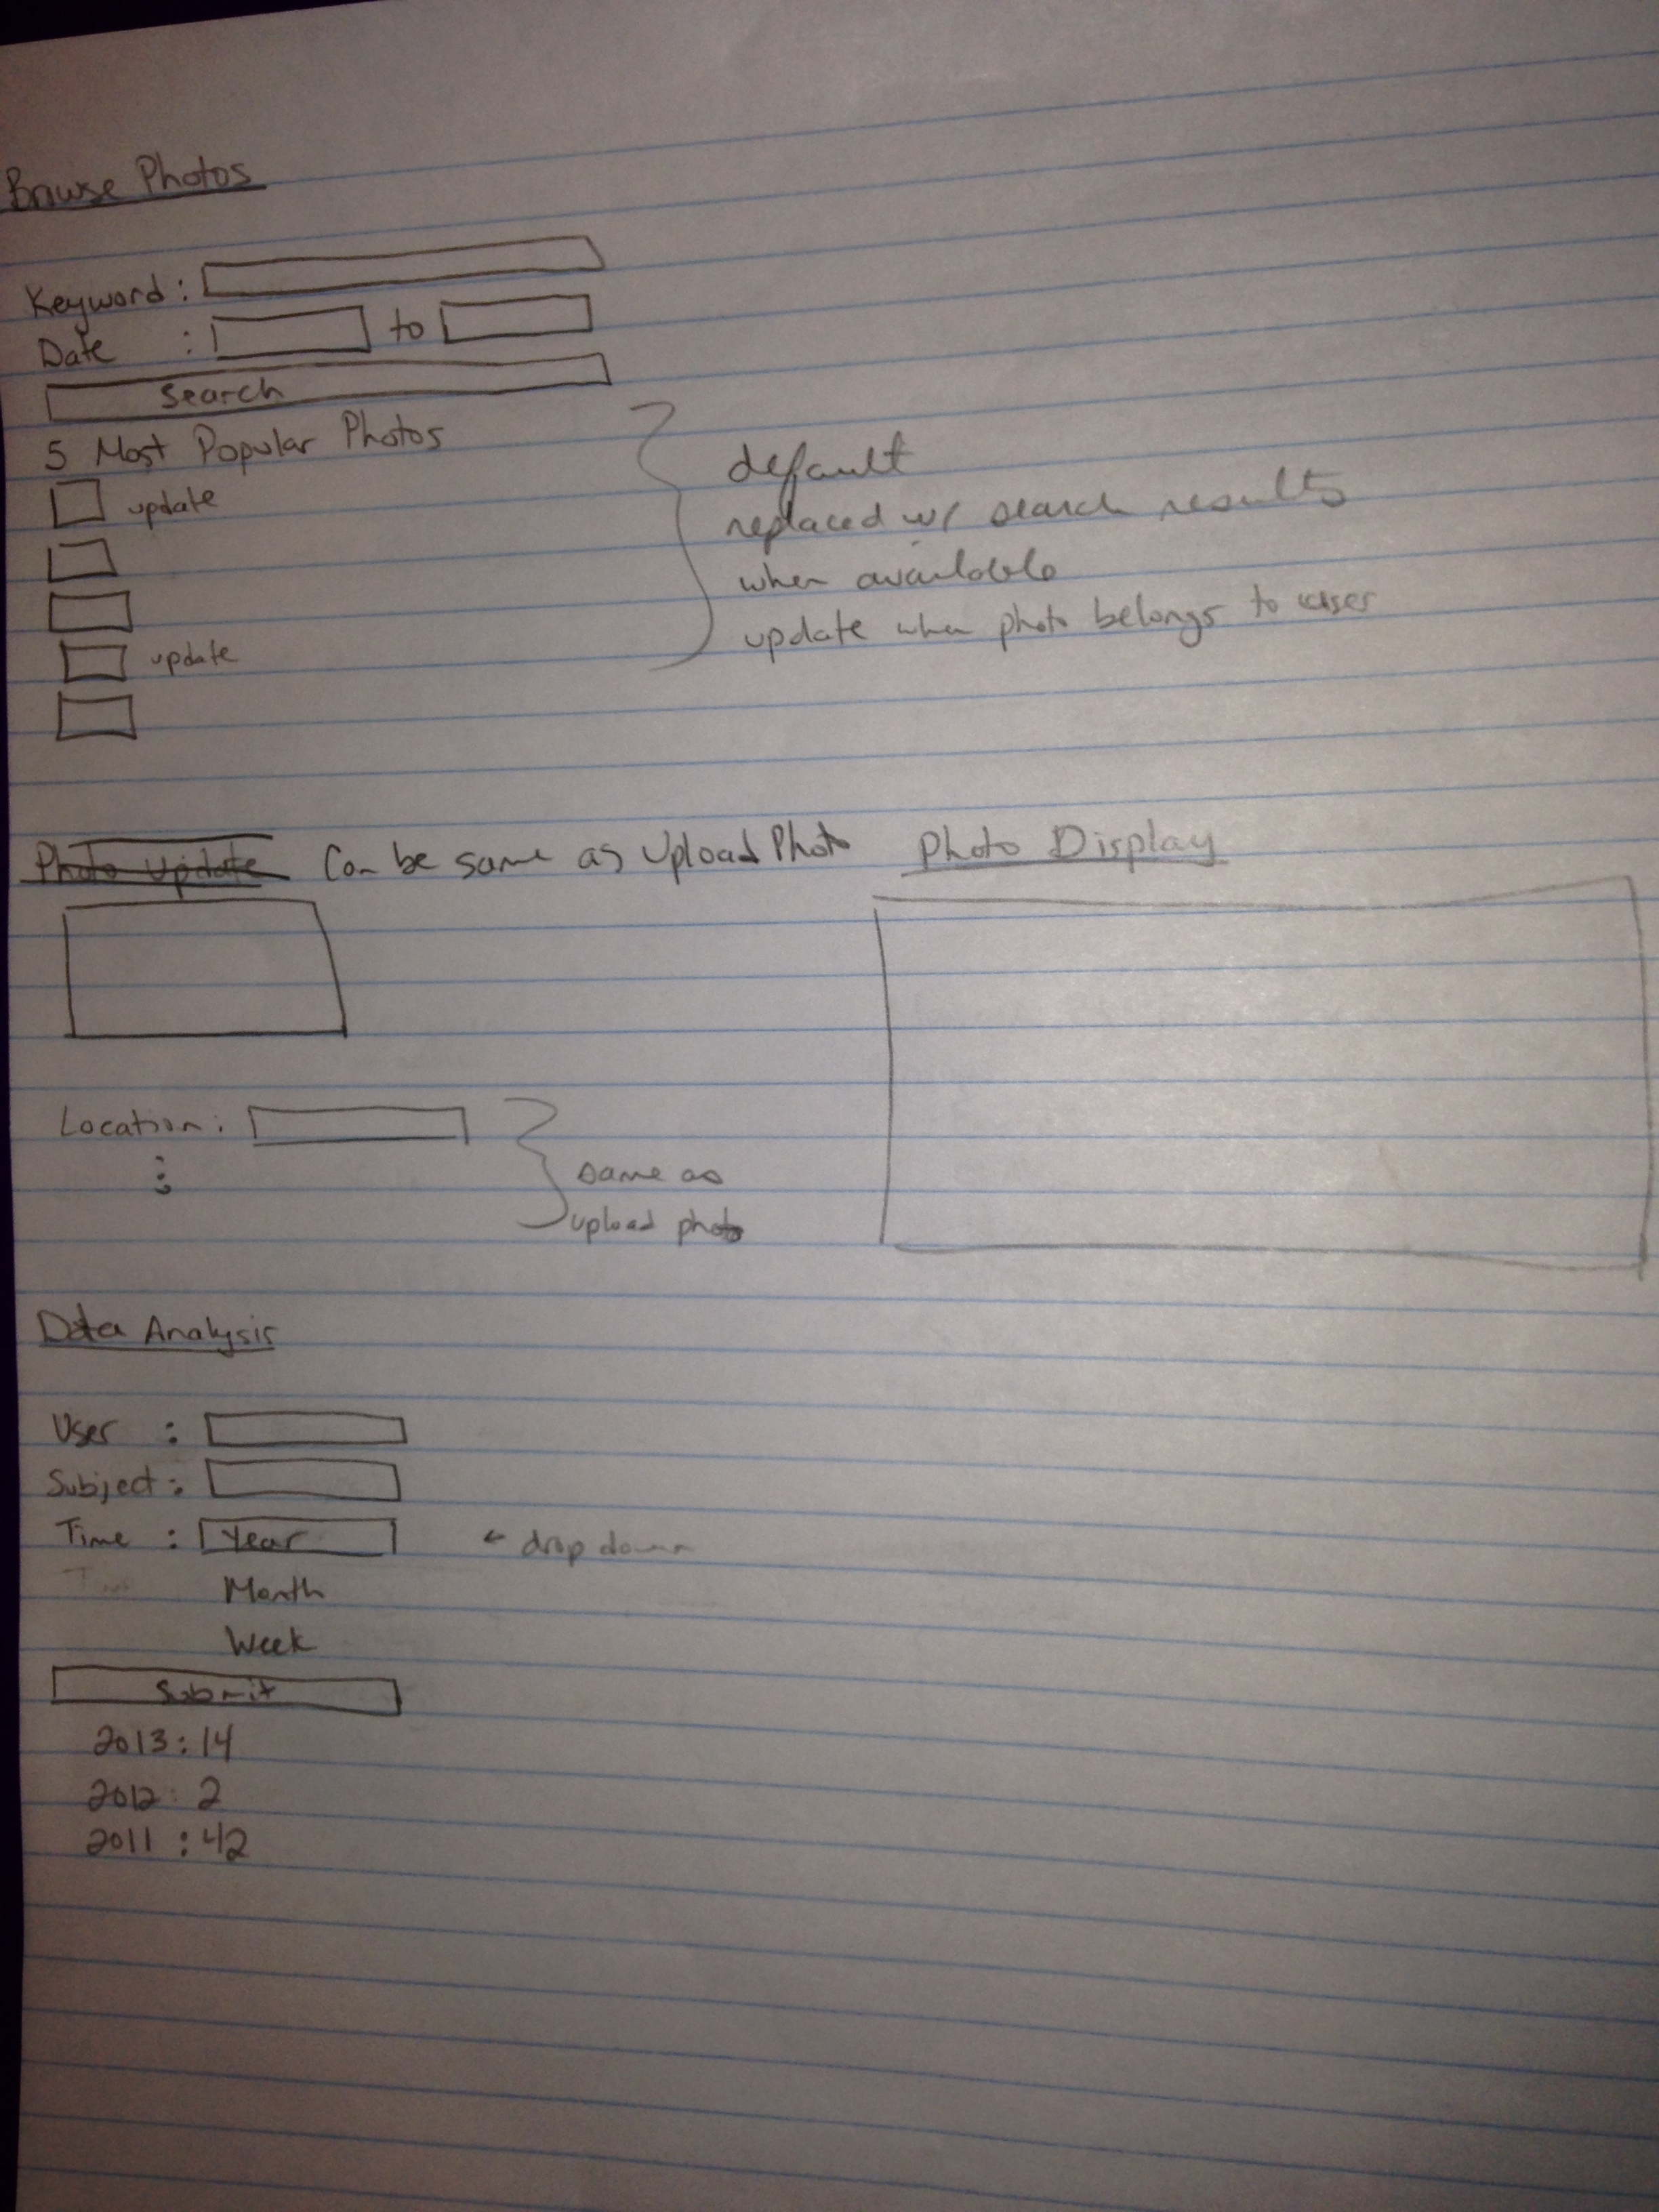 Browse Photos
Keyword :
Date : to
Search
5 Most Popular Photos
update
update
default
replaced w/ search results
when available
update when photo belongs to user
Photo Update Can be same as Upload Photo
Location :
same as
upload photo
Photo Display
Data Analysis
User :
Subject :
Time : Year ← drop down
Month
Week
Submit
2013 : 14
2012 : 2
2011 : 42